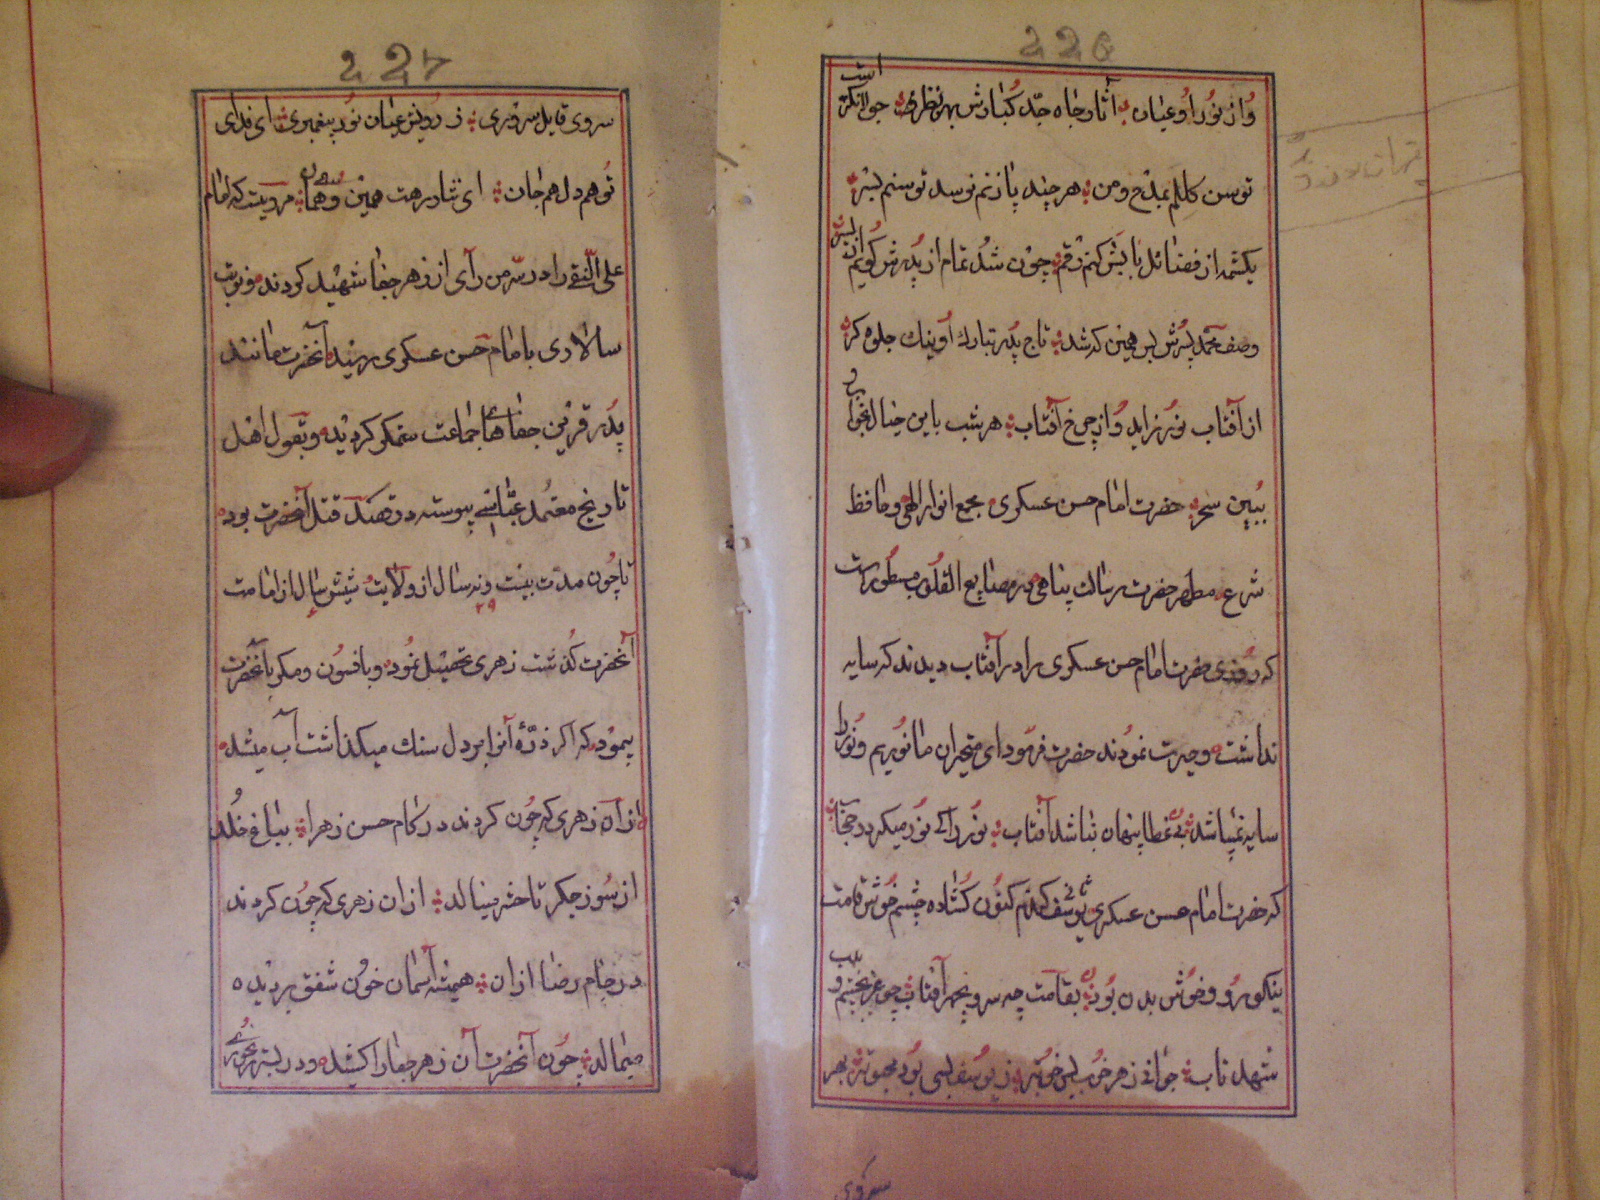 226
است
و از نور او عیان آثار جاه جد کبارش بهر نظر
توسن کلکم بمدح و من هر چند پا زنم نرسد توسنم بسر
یکشمه از فضائل بابش کنم رقم چون شد تمام از پدرش گویم از پسرش
وصف محمد پسرش بس همین که شد تاج پدر تبارك او ینك جلوه کر
از آفتاب نور نزاید و از چرخ آفتاب هر شب باین خیال
ببین سحر حضرت امام حسن عسکری مجمع انوار الهی و حافظ
شرع مطهر حضرت رسالت پناهی در مصابیح القلوب مسطورست
که روزی حضرت امام حسن عسکری را در آفتاب دیدند که سایه
نداشت و حیرت نمودند حضرت فرمود ای متحیران ما نوریم و نور را
سایه نمیباشد بی غطا پنهان نباشد آفتاب نور را کی نور میکردد حجاب
که حضرت امام حسن عسکری یوسف ثانی کندم کون کشاده چشم خوش قامت
نیکو رو و خوش بدن بود بقامت چه سرو بچهر آفتاب چو
شهد ناب جوانی ز هر خوب بس خوبتر ز یوسف بسی بود محبوبتر بهر
سروی
227
سروی قابل سروری ز رویش عیان نور پیغمبری ای فدای
تو هم دل هم جان ای نثار رهت همین و همان مرویست که امام
علی النقی را در سر من رآی از زهر جفا شهید کردند و نوبت
سالاری با امام حسن عسکری رسید آنحضرت مانند
پدر قرین جفاهای جماعت ستمکر کردید و بقول اهل
تاریخ معتمد عباسی پیوسته در تهتک قتل آنحضرت بود
تا چون مدت بیست و نه سال از ولایت شیش سال از امامت
۲۹
آنحضرت کذشت زهری تحصیل نمود و بافسون و مکر بآنحضرت
پیمود که اکر ذرهٔ آنرا بر دل سنك میکذاشت آب میشد
از آن زهری که چون کردند در کام حسن زهرا بباغ خلد
از سوز جکر تا حشر مینالد از ان زهری که چون کردند
در جام رضا از ان همیشه آسمان خون شفق بر دیده
میمالد چون آنحضرت آن زهر جفا را کشید و در بستر رنجوری